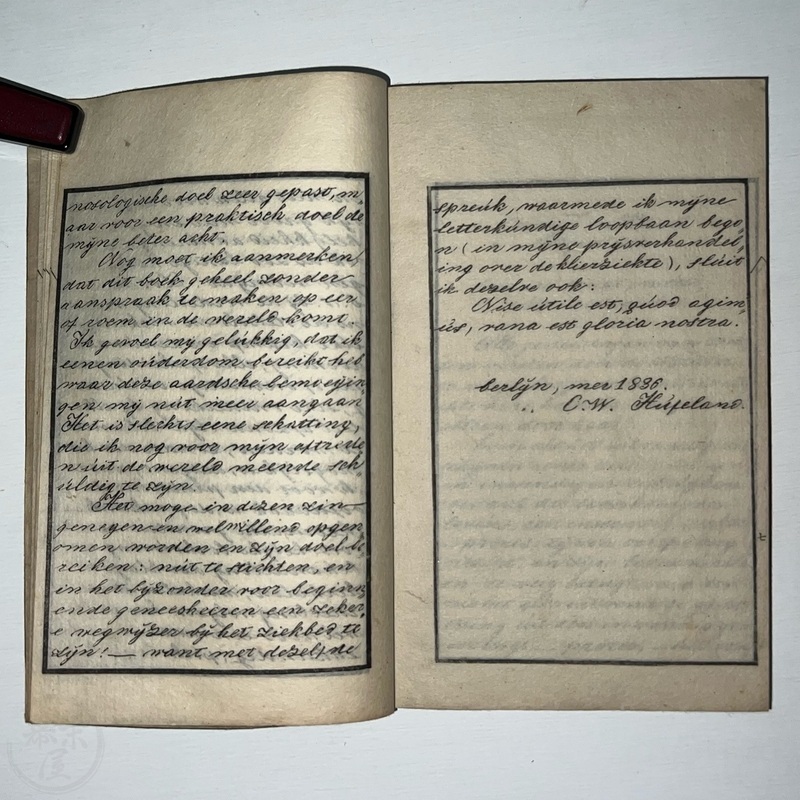 nosologische doel zeer gepast, m
aar voor een praktisch doel de
mÿne beter acht.
Nog moet ik aanmerken,
dat dit boek geheel zonder
aanspraak te maken op eer
of roem in de wereld komt.
Ik gevoel mÿ gelúkkig, dat ik
eenen oúderdom bereikt heb
waar deze aardsche bemoeÿin
gen mÿ niit meer aangaan
Het is slechts eene schatting,
die ik nog voor mÿn aftrede
n úit de wereld meende sch
úldig te zÿn.
Het moge in dezen zin
genegen en welwillend opgen
omen worden en zÿn doel be
reiken: nút te stichten, en
in het bÿzonder voor beginn
ende geneesheeren een zeker
e wegwÿzer bÿ het ziekbed te
zÿn! — want met dezelfde
spreúk, waarmede ik mÿne
letterkúndige loopbaan bego
n (in mÿne prÿsverhandel
ing over de klierziekte), slúit
ik dezelve ook:
Nise útile est, qúod agim
ús, vana est gloria nostra.
berlÿn, mei 1836.
C.W. Húfeland.